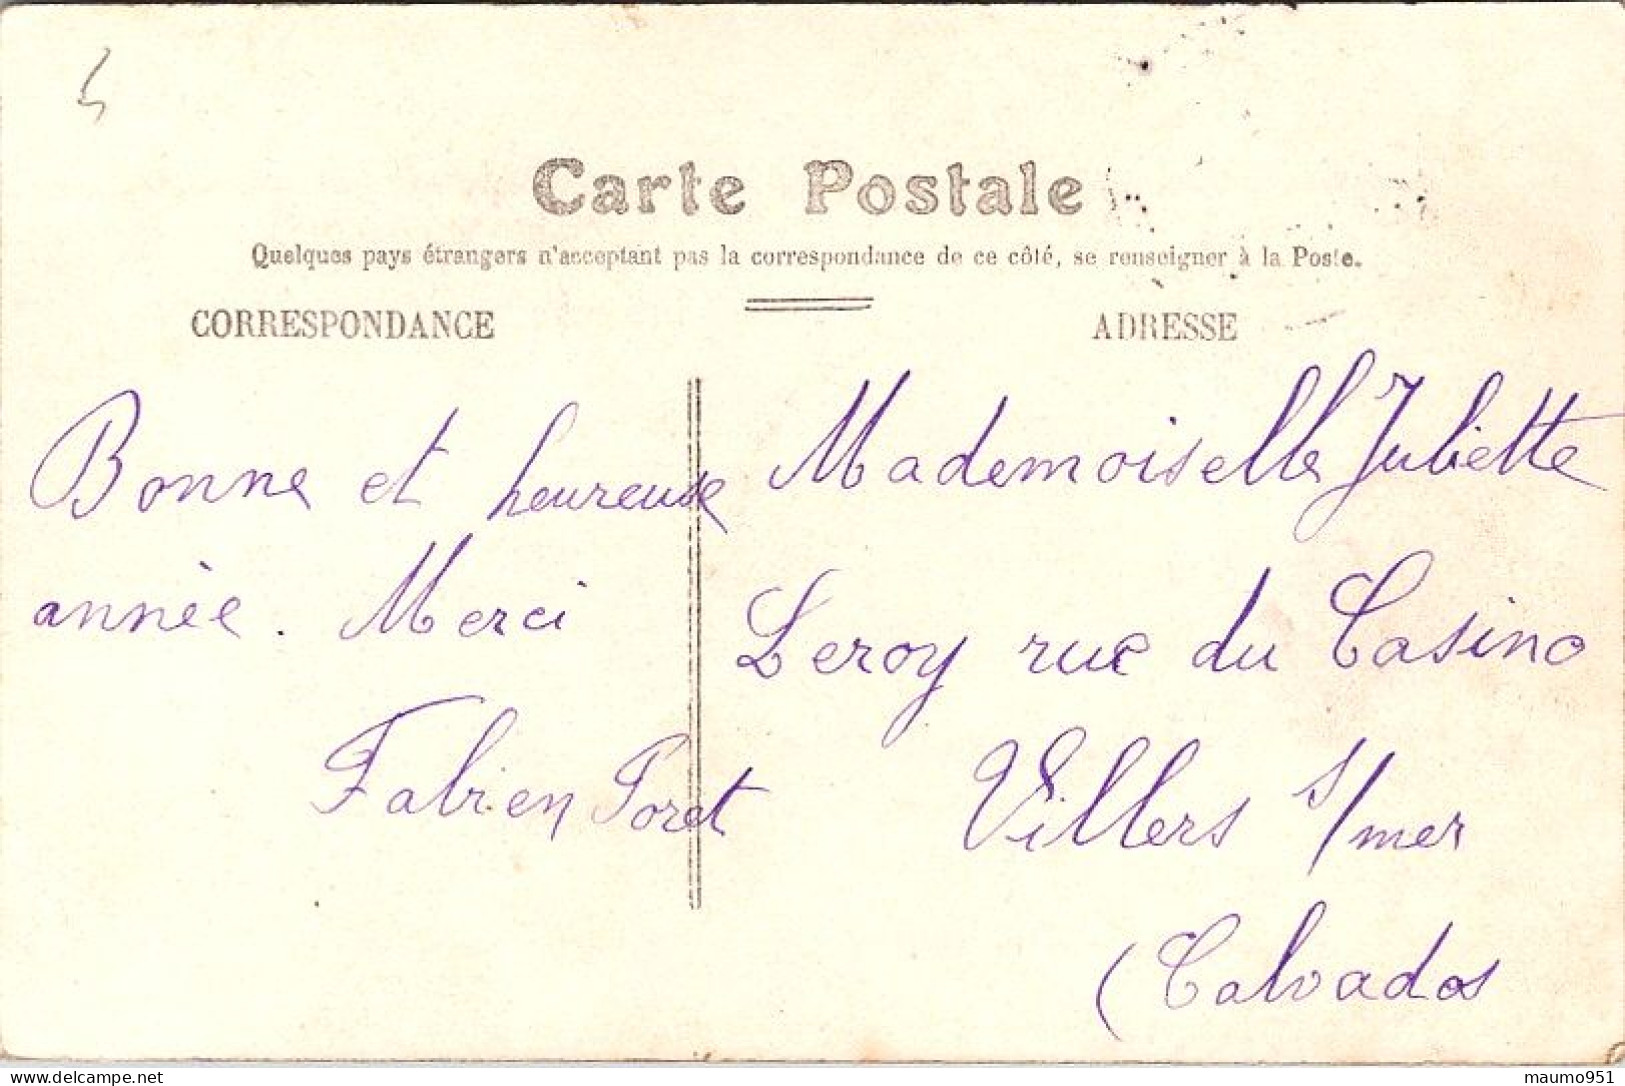 Carte Postale
Quelques pays étrangers n'acceptant pas la correspondance de ce côté, se renseigner à la Poste.
CORRESPONDANCE
Bonne et heureuse
année. Merci
Fabien Poret
ADRESSE
Mademoiselle Juliette
Leroy rue du Casino
Villers s/mer
(Calvados
www.delcampe.net
maumo951